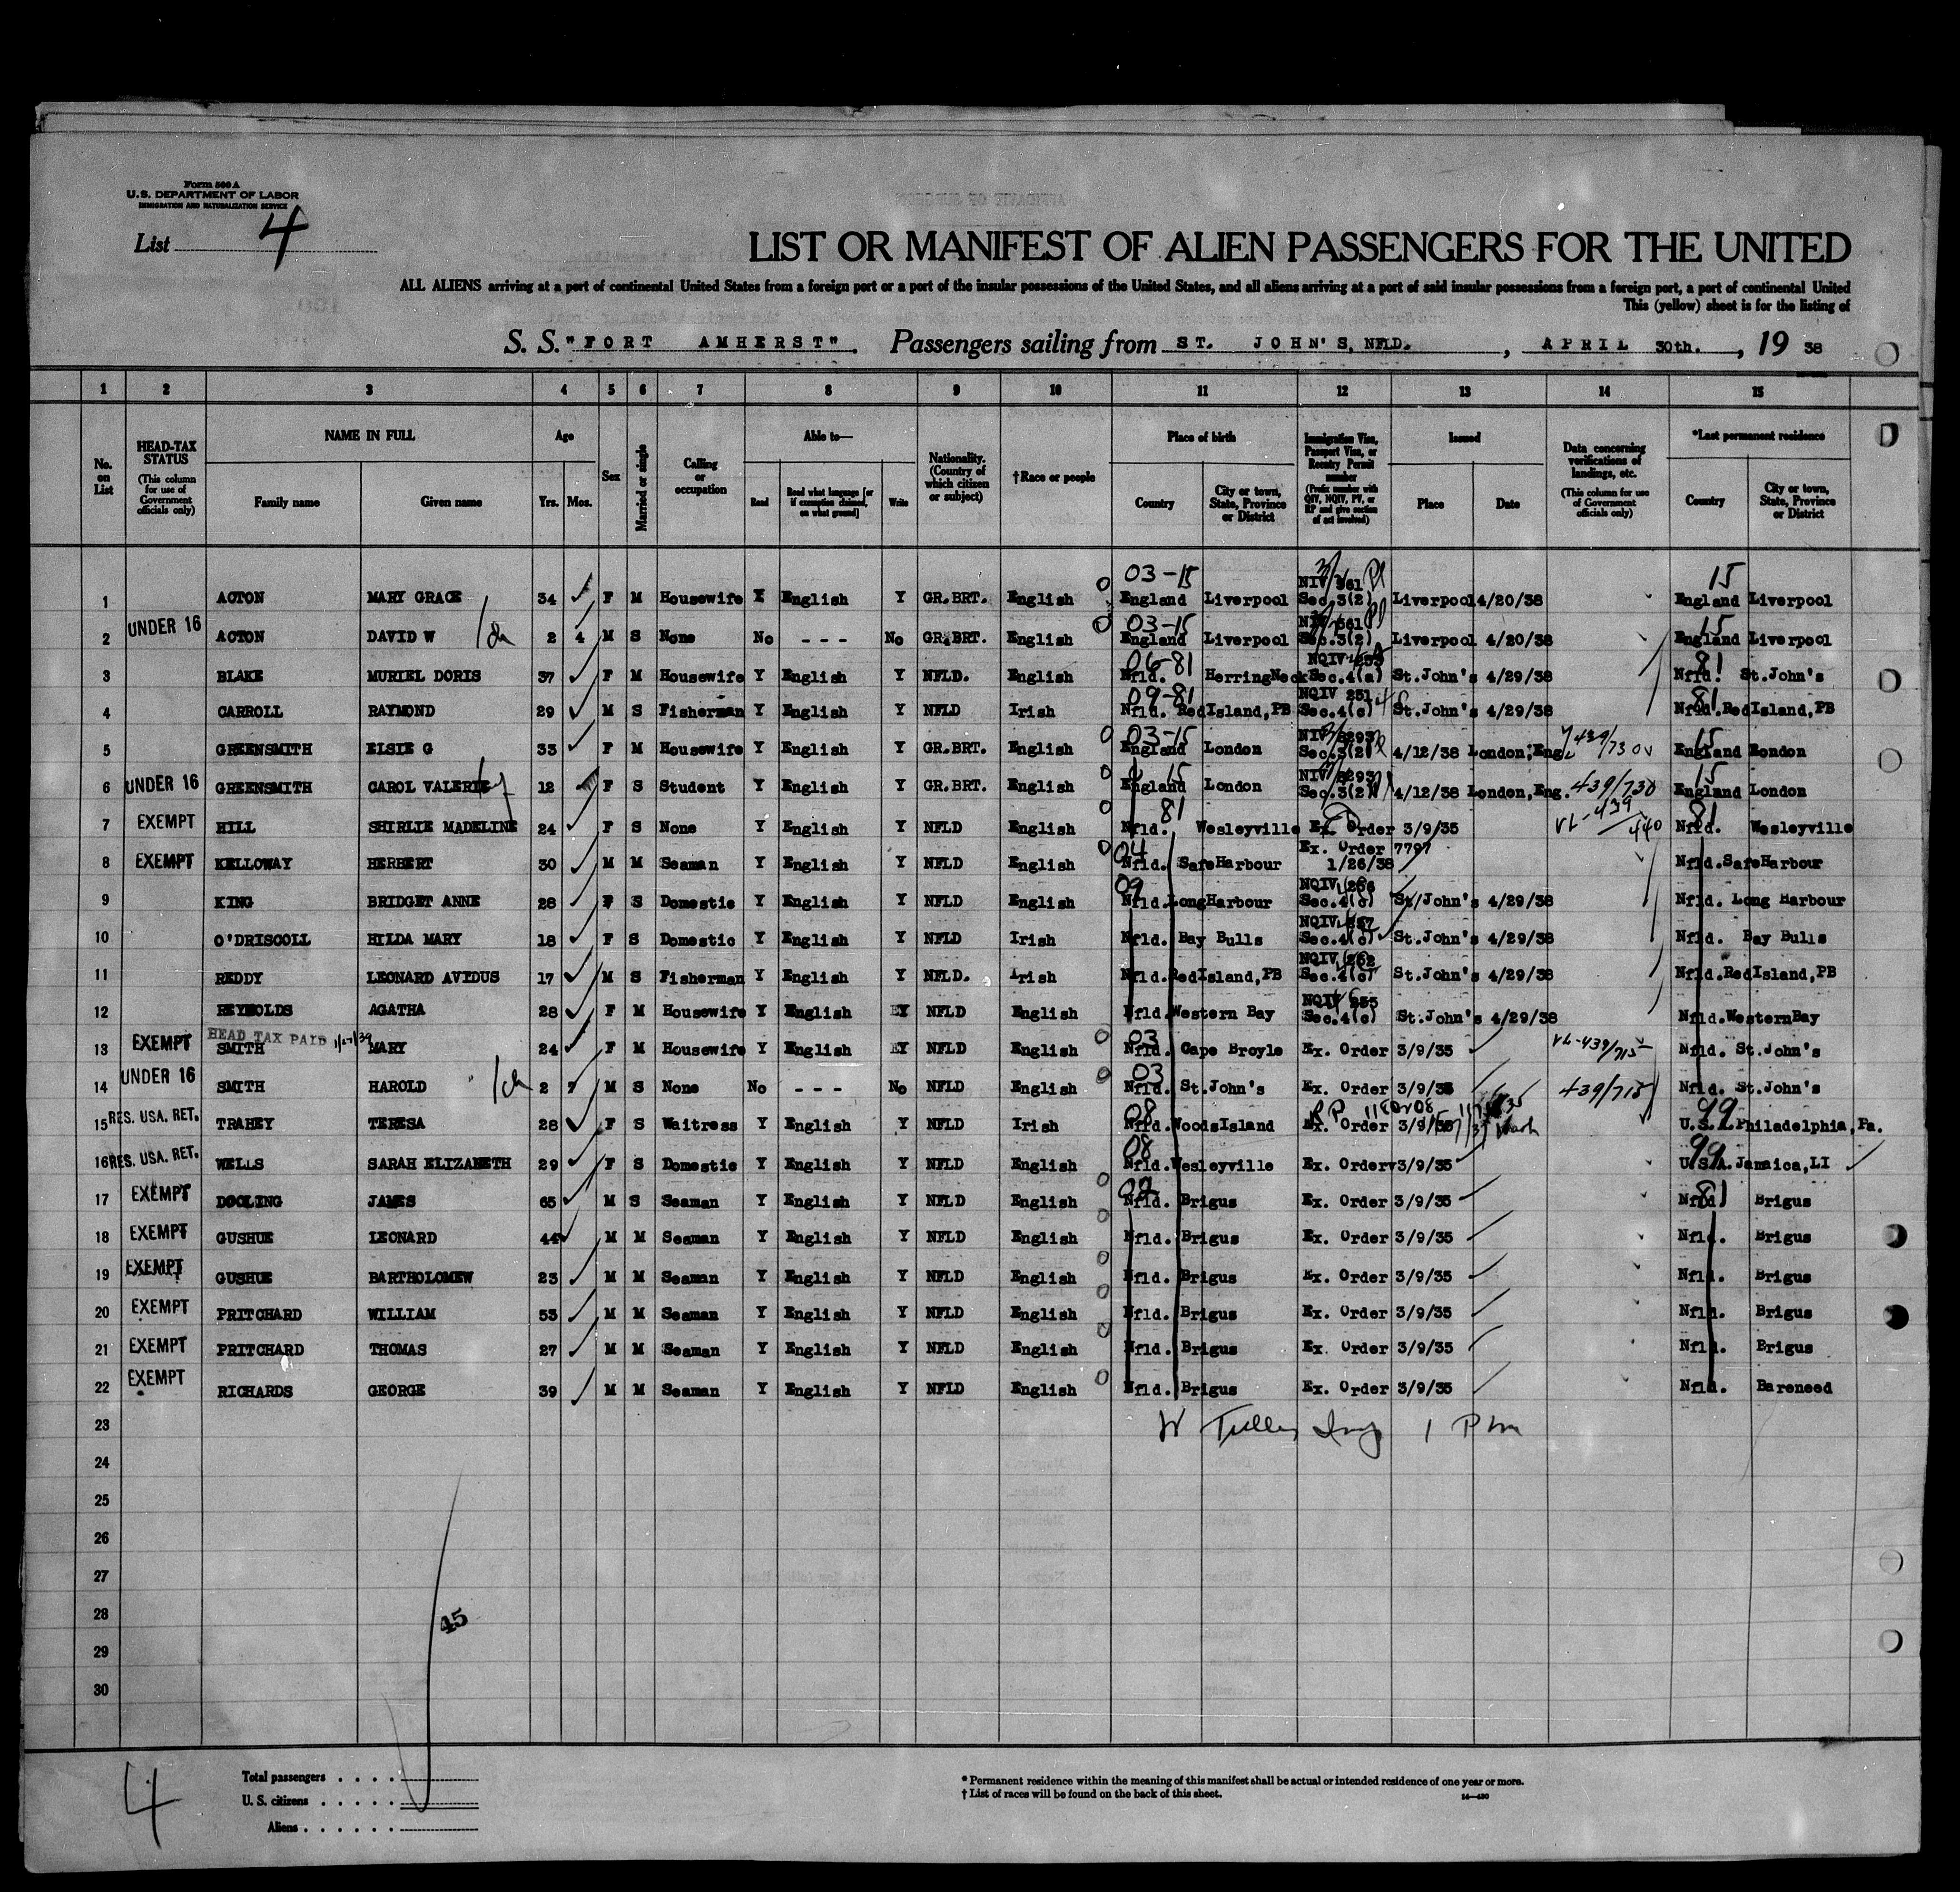 Form 500 A
U.S. DEPARTMENT OF LABOR
IMMIGRATION AND NATURALIZATION SERVICE
List 4
LIST OR MANIFEST OF ALIEN PASSENGERS FOR THE UNITED
ALL ALIENS arriving at a port of continental United States from a foreign port or a port of the insular possessions of the United States, and all aliens arriving at a port of said insular possessions from a foreign port, a port of continental United
This (yellow) sheet is for the listing of
S. S. "FORT AMHERST". Passengers sailing from ST. JOHN'S, NFLD., APRIL 30th., 19 38
1 2 3 4 5 6 7 8 9 10 11 12 13 14 15
No. on List
HEAD-TAX STATUS (This column for use of Government officials only)
NAME IN FULL Family name Given name
Age Yrs. Mos.
Sex
Married or single
Calling or occupation
Able to— Read Read what language [or if exemption claimed, on what ground] Write
Nationality. (Country of which citizen or subject)
†Race or people
Place of birth Country City or town, State, Province or District
Immigration Visa, Passport Visa, or Reentry Permit number (Prefix number with QIV, NQIV, PV, or RP and give section of act involved)
Issued Place Date
Data concerning verifications of landings, etc. (This column for use of Government officials only)
*Last permanent residence Country City or town, State, Province or District
03-15 15
1 ACTON MARY GRACE 34 F M Housewife Y English Y GR.BRT. English England Liverpool NIV 361 Sec.3(2) Liverpool 4/20/38 England Liverpool
03-15 15
2 UNDER 16 ACTON DAVID W 2 4 M S None No --- No GR.BRT. English England Liverpool Sec.3(2) Liverpool 4/20/38 England Liverpool
06-81 81
3 BLAKE MURIEL DORIS 37 F M Housewife Y English Y NFLD. English Nfld. HerringNeck NQIV Sec.4(a) St.John's 4/29/38 Nfld. St.John's
09-81 81
4 CARROLL RAYMOND 29 M S Fisherman Y English Y NFLD Irish Nfld. RedIsland,PB NQIV 251 Sec.4(c) St.John's 4/29/38 Nfld.RedIsland,PB
03-15 15
5 GREENSMITH ELSIE G 33 F M Housewife Y English Y GR.BRT. English England London NIV 8293 Sec.3(2) 4/12/38 London,Eng. 439/730 England London
15 15
6 UNDER 16 GREENSMITH CAROL VALERIE 12 F S Student Y English Y GR.BRT. English England London NIV 8293 Sec.3(2) 4/12/38 London,Eng. 439/730 England London
81 81
7 EXEMPT HILL SHIRLIE MADELINE 24 F S None Y English Y NFLD English Nfld. Wesleyville Ex. Order 3/9/35 VL-439/440 Nfld. Wesleyville
04
8 EXEMPT KELLOWAY HERBERT 30 M M Seaman Y English Y NFLD English Nfld. SafeHarbour Ex. Order 7797 1/26/38 Nfld.SafeHarbour
09
9 KING BRIDGET ANNE 28 F S Domestic Y English Y NFLD English Nfld.LongHarbour NQIV 256 Sec.4(c) St.John's 4/29/38 Nfld. Long Harbour
10 O'DRISCOLL HILDA MARY 18 F S Domestic Y English Y NFLD Irish Nfld. Bay Bulls NQIV Sec.4(c) St.John's 4/29/38 Nfld. Bay Bulls
11 REDDY LEONARD AVIDUS 17 M S Fisherman Y English Y NFLD. Irish Nfld.RedIsland,PB NQIV 252 Sec.4(c) St.John's 4/29/38 Nfld.RedIsland,PB
12 REYNOLDS AGATHA 28 F M Housewife Y English Y NFLD English Nfld.Western Bay NQIV 255 Sec.4(c) St.John's 4/29/38 Nfld.WesternBay
HEAD TAX PAID 03
13 EXEMPT SMITH MARY 24 F M Housewife Y English Y NFLD English Nfld. Cape Broyle Ex. Order 3/9/35 VL-439/715 Nfld. St.John's
03
14 UNDER 16 SMITH HAROLD 2 7 M S None No --- No NFLD English Nfld. St.John's Ex. Order 3/9/35 439/715 Nfld. St.John's
08 RP 99
15 RES. USA. RET. TRAHEY TERESA 28 F S Waitress Y English Y NFLD Irish Nfld.WoodsIsland Ex. Order 3/9/35 Wash U.S. Philadelphia,Pa.
08 99
16 RES. USA. RET. WELLS SARAH ELIZABETH 29 F S Domestic Y English Y NFLD English Nfld.Wesleyville Ex. Order 3/9/35 U.S.A. Jamaica,LI
09 81
17 EXEMPT DOOLING JAMES 65 M S Seaman Y English Y NFLD English Nfld. Brigus Ex. Order 3/9/35 Nfld Brigus
18 EXEMPT GUSHUE LEONARD 44 M M Seaman Y English Y NFLD English Nfld. Brigus Ex. Order 3/9/35 Nfld. Brigus
19 EXEMPT GUSHUE BARTHOLOMEW 23 M M Seaman Y English Y NFLD English Nfld. Brigus Ex. Order 3/9/35 Nfld. Brigus
20 EXEMPT PRITCHARD WILLIAM 53 M M Seaman Y English Y NFLD English Nfld. Brigus Ex. Order 3/9/35 Nfld. Brigus
21 EXEMPT PRITCHARD THOMAS 27 M M Seaman Y English Y NFLD English Nfld. Brigus Ex. Order 3/9/35 Nfld. Brigus
22 EXEMPT RICHARDS GEORGE 39 M M Seaman Y English Y NFLD English Nfld. Brigus Ex. Order 3/9/35 Nfld. Bareneed
23 1 Pm
24
25
26
27
28
45
29
30
4
Total passengers
U. S. citizens
Aliens
* Permanent residence within the meaning of this manifest shall be actual or intended residence of one year or more.
† List of races will be found on the back of this sheet.
14—430